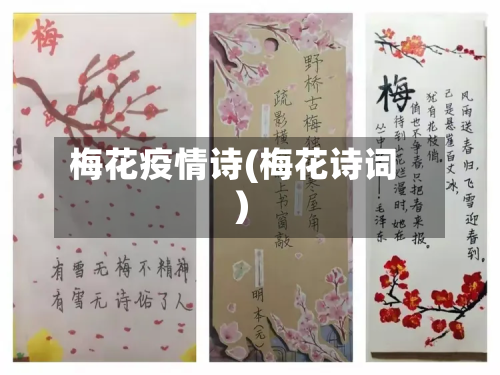 梅花疫情诗(梅花诗词
)
梅
有雪无梅不精神
有雪无诗俗了人
野桥古梅独
寒屋角
疏影横
上书窗敲
明本(元)
梅
风雨送春归，飞雪迎春到。
已是悬崖百丈冰，
犹有花枝俏。
俏也不争春，只把春来报。
待到山花烂漫时，她在
丛中
毛泽东